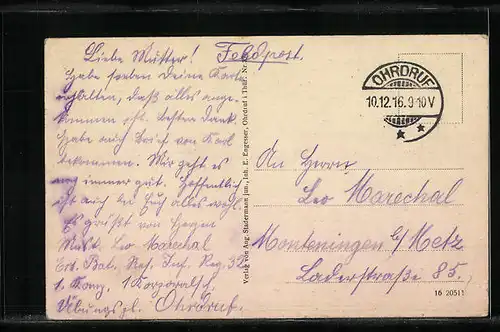 Liebe Mutter! Feldpost.
Habe soeben Deine Karte
erhalten, daß alles ange-
kommen ist. Besten Dank.
Habe auch Brief von Karl
bekommen. Mir geht es
noch immer gut. Hoffentlich
ist auch bei Euch alles wohl.
Es grüßt von Herzen
Musk. Leo Marechal
Ers. Bat. Res. Inf. Reg. 32
1. Komp. 1 Korporalsch.
Übungspl. Ohrdruf.
Verlag von Aug. Studermann jun., Inh. E. Engesser, Ohrdruf i Thür. Nr.
OHRDRUF
10.12.16.9-10V
* *
An Herrn
Leo Marechal
Monteningen b/Metz
Laderstraße 85.
16 20511